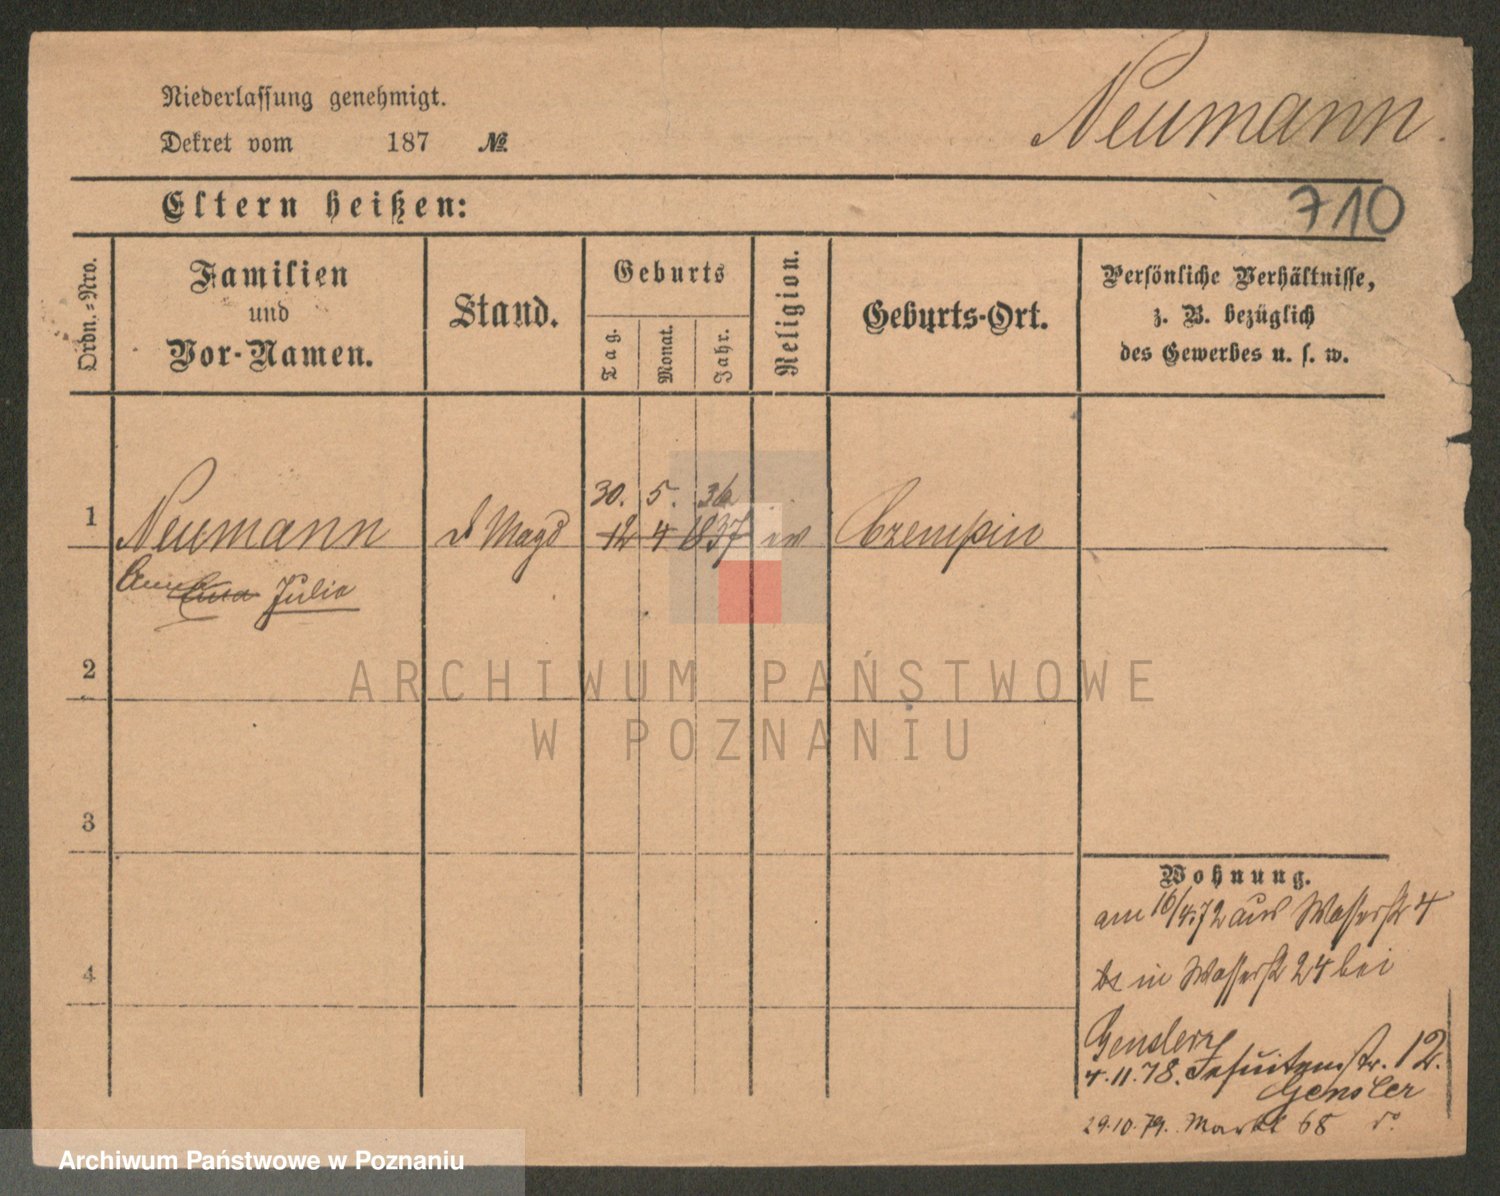 Niederlassung genehmigt.
Dekret vom 187 №
Neumann.
Eltern heißen:
710
Ordn.=Nro.
Familien
und
Vor-Namen.
Stand.
Geburts
Tag.
Monat.
Jahr.
Religion.
Geburts-Ort.
Persönliche Verhältnisse,
z. B. bezüglich
des Gewerbes u. s. w.
30. 5. 36
1 Neumann d Magd 12 4 1837 ev Czempin
Julia
2
3
4
Wohnung.
am 16/4.72 aus Wasserstr 4
in Wasserstr 24 bei
Gensler
4.11.78. Jesuitenstr. 12.
Gensler
29.10.79. Markt 68 do
ARCHIWUM PAŃSTWOWE
W POZNANIU
Archiwum Państwowe w Poznaniu